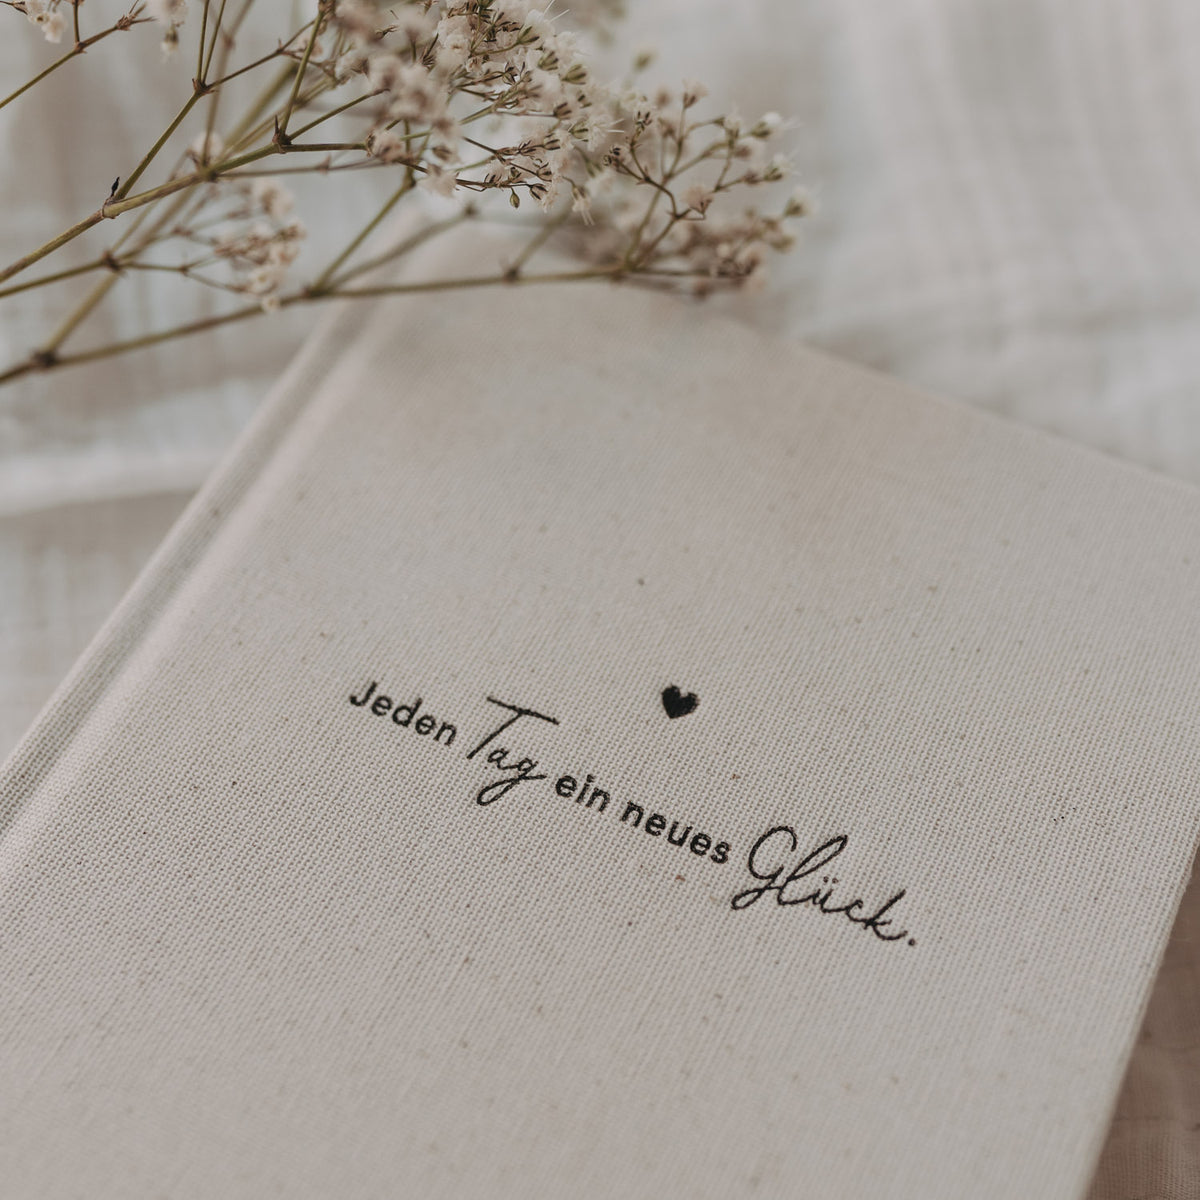 Jeden Tag ein neues Glück.